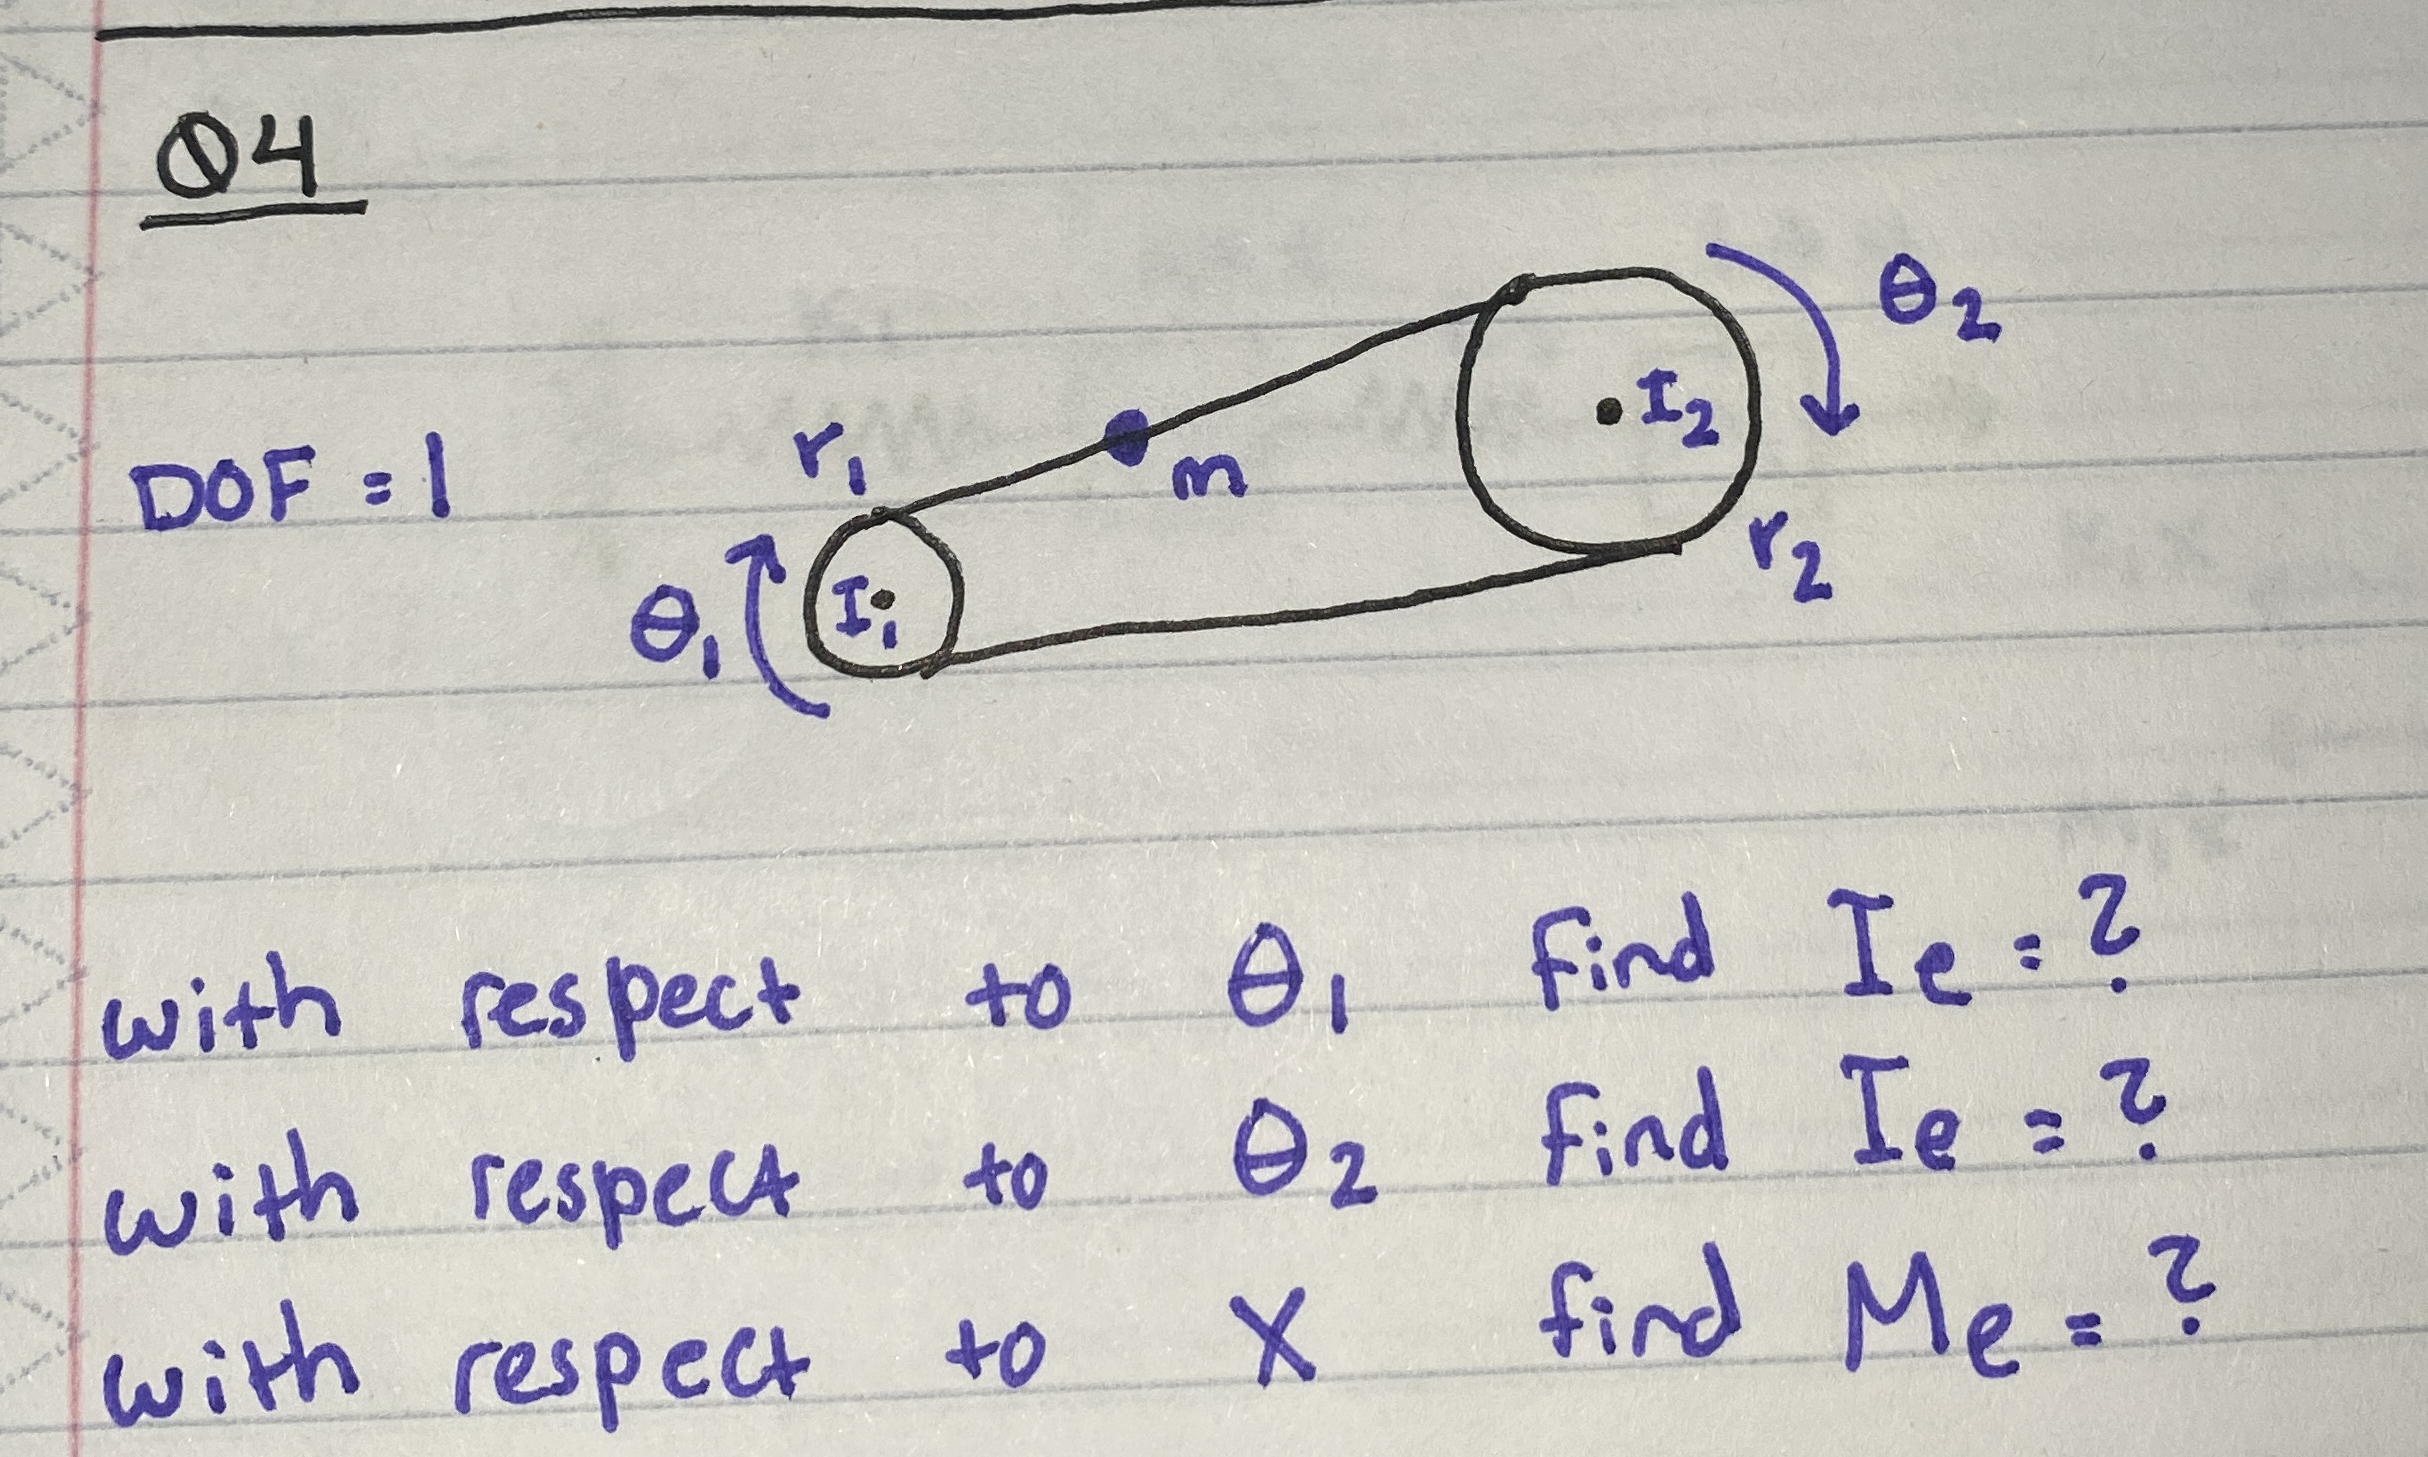 Q4
θ2
I2
r1
m
DOF = 1
r2
θ1
I1
with respect to θ1 find Ie = ?
with respect to θ2 find Ie = ?
with respect to X find Me = ?